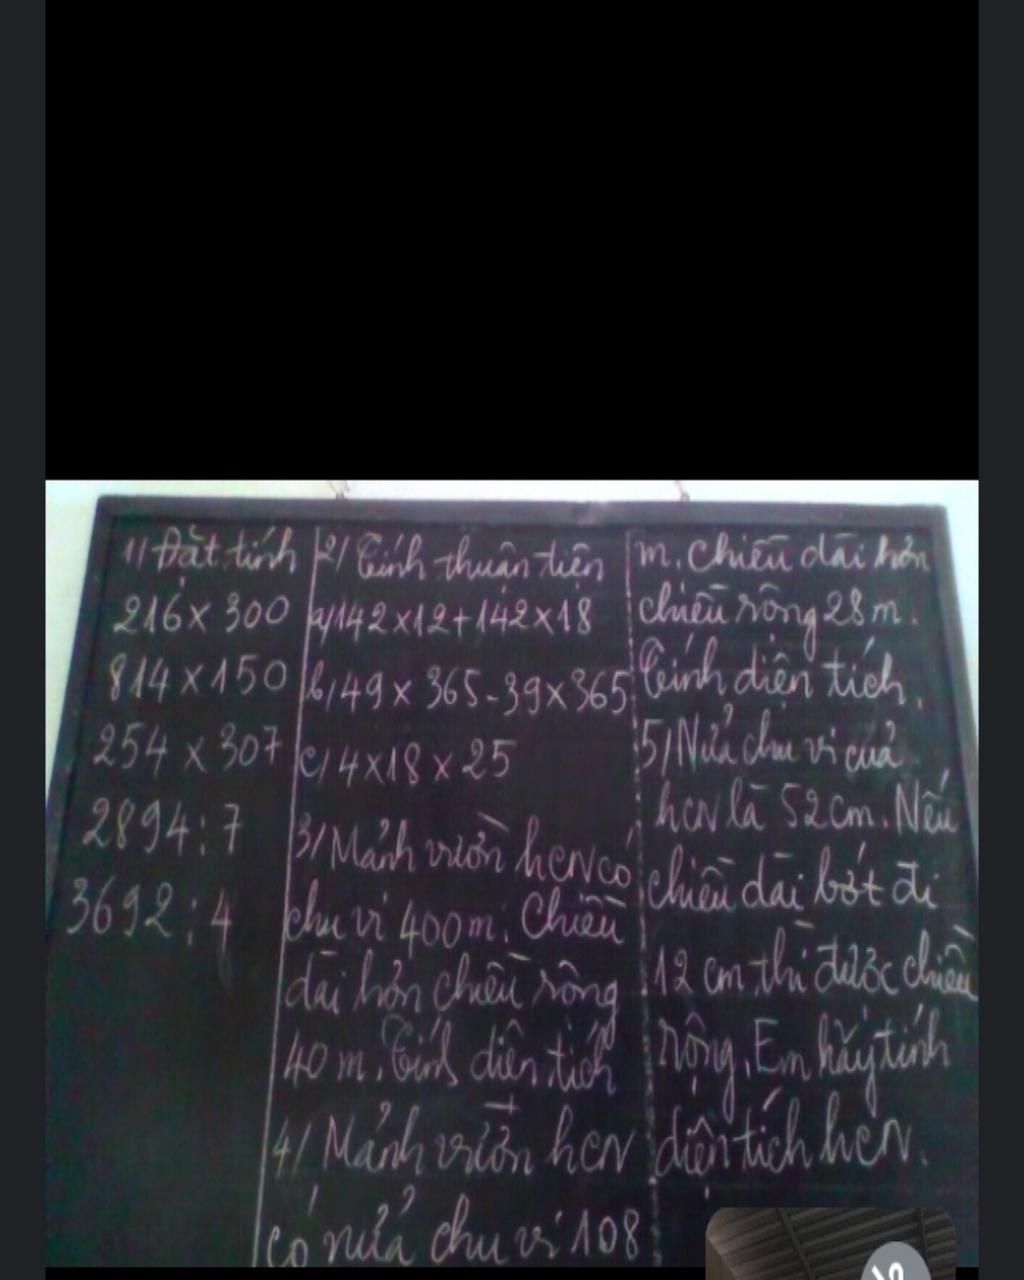 1/ Đặt tính
216 x 300
814 x 150
254 x 307
2894 : 7
3692 : 4
2/ Tính thuận tiện
a/ 142 x 12 + 142 x 18
b/ 49 x 365 - 39 x 365
c/ 4 x 18 x 25
3/ Mảnh vườn hcn có
chu vi 400m. Chiều
dài hơn chiều rộng
40 m. Tính diện tích
4/ Mảnh vườn hcn
có nửa chu vi 108
m. Chiều dài hơn
chiều rộng 28 m.
Tính diện tích.
5/ Nửa chu vi của
hcn là 52 cm. Nếu
chiều dài bớt đi
12 cm thì được chiều
rộng. Em hãy tính
diện tích hcn.